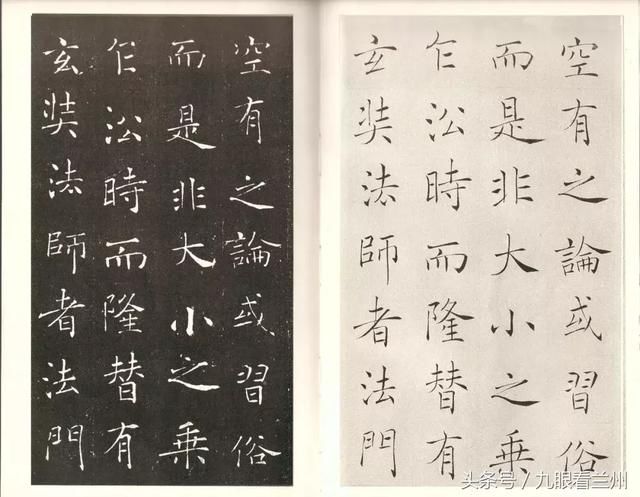 空有之論或習俗
而是非大小之乗
乍㳂時而隆替有
玄奘法師者法門
空有之論或習俗
而是非大小之乗
乍㳂時而隆替有
玄奘法師者法門
头条号/九眼看兰州